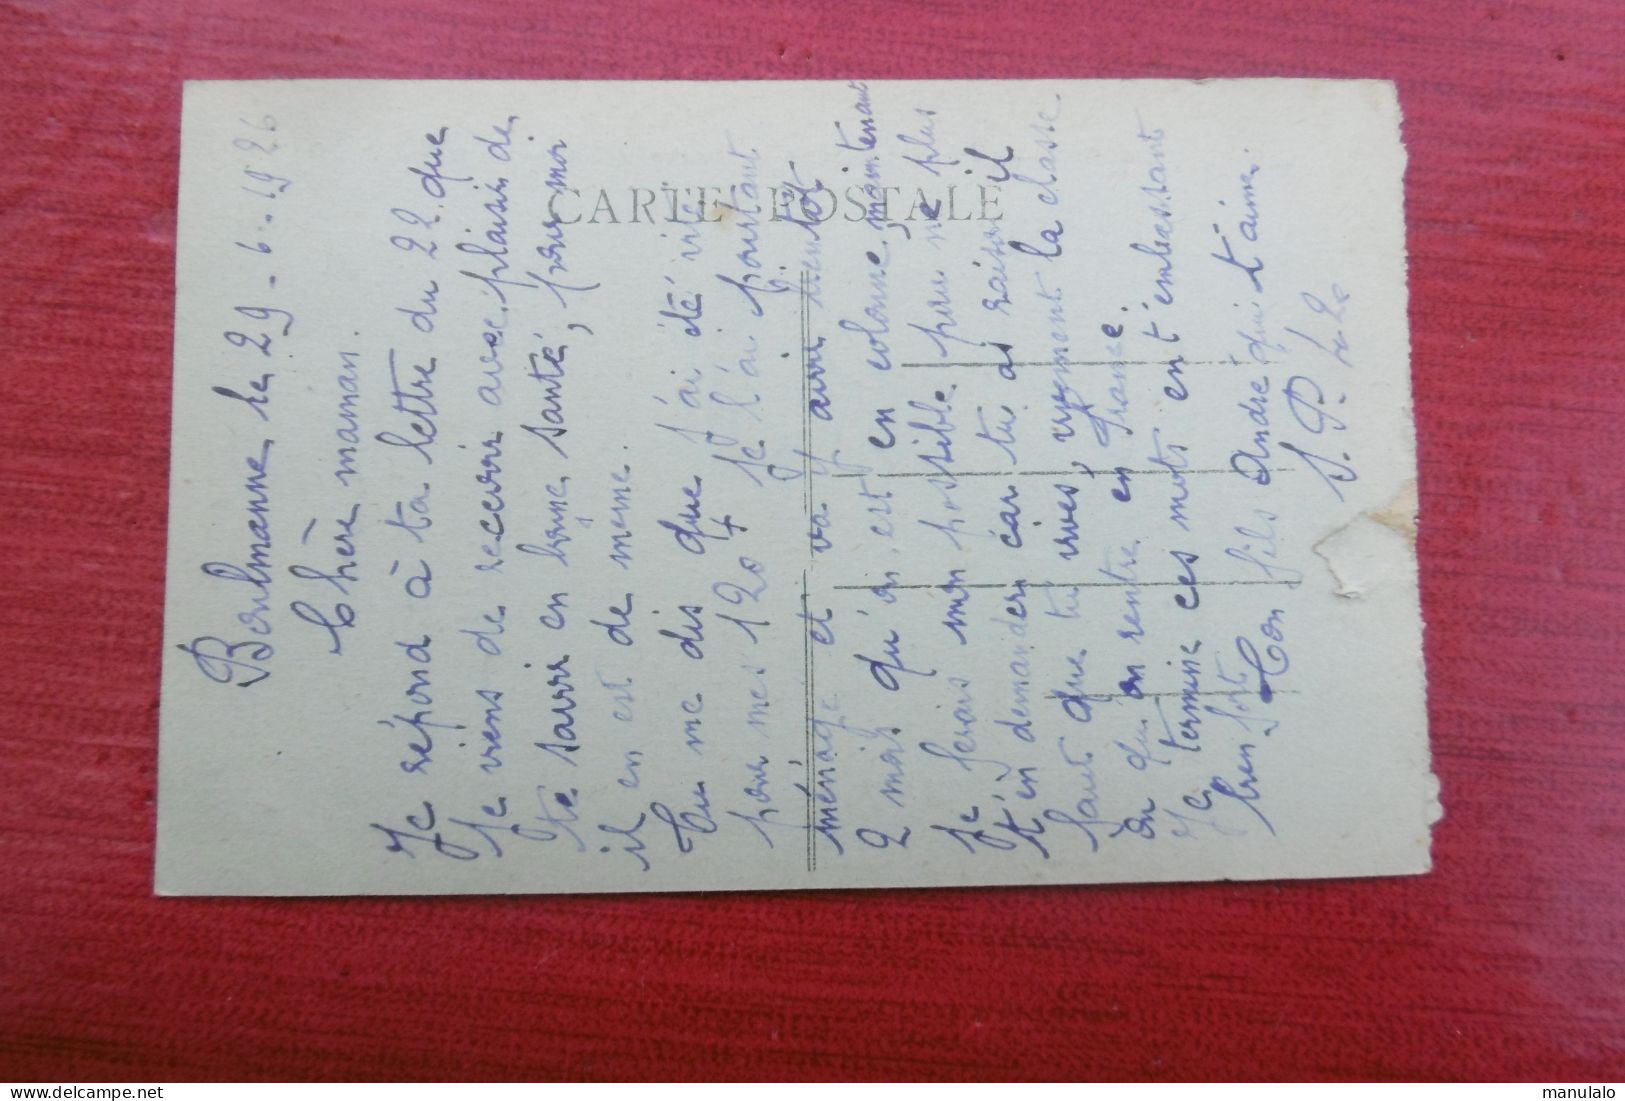 Boulmanne le 29-6-1926
Chère maman.
Je répond à ta lettre du 22 que
Je viens de recevoir avec plaisir de
te savoir en bonne santé, pour moi
il en est de meme.
Tu me dis que j'ai été vite
pour mes 120f je l'ai pourtant
ménagé et va y avoir bientôt
2 mois qu'on est en colonne, maintenant
Je ferais mon possible pour ne plus
t'en demander car tu as raison il
faut que tu vives, vivement la classe
qu'on rentre en France.
Je termine ces mots en t'embrassant
bien fort
Ton fils André qui t'aime.
S. P.
CARTE POSTALE
manulalo